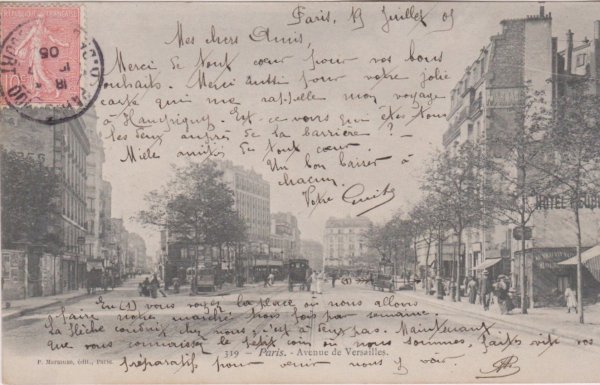 Paris, 19 Juillet 05
Mes chers Amis,
Merci de tout cœur pour vos bons
souhaits. Merci aussi pour votre jolie
carte qui me rappelle mon voyage
à Est-ce vous qui êtes tous
les deux auprès de la barrière ?
Mille amitiés de tout cœur.
Un bon baiser à
chacun,
Votre
En (1) vous voyez la place où nous allons
faire notre marché trois fois par semaine
La flèche conduit chez nous, c'est à deux pas. Maintenant
que vous connaissez le petit coin où nous sommes, faites vite vos
préparatifs pour venir nous y voir.
319 - Paris. - Avenue de Versailles.
P. Marmuse, édit., Paris.
HOTEL